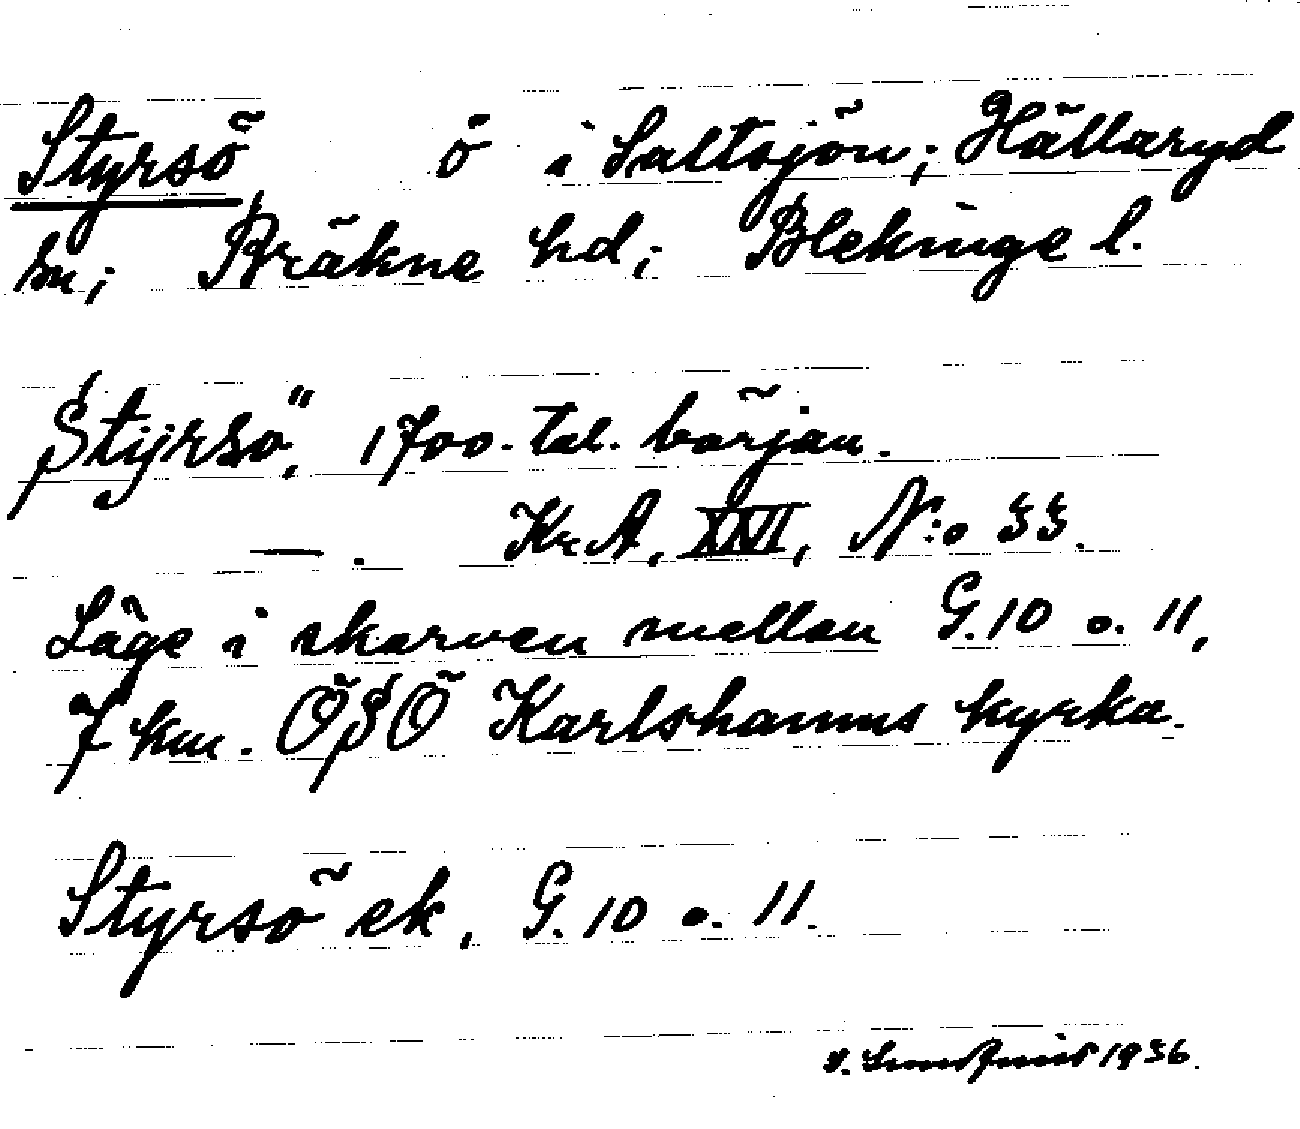 Styrsö ö i Saltsjön; Hällaryd
sn; Bräkne hd; Blekinge l.
Stÿrsö", 1700-tal. början.
—. Kr.A, XXVI, N:o 33.
Läge i skarven mellan G.10 o. 11,
7 km. ÖSÖ Karlshamns kyrka.
Styrsö ek, G.10 o. 11.
1936.